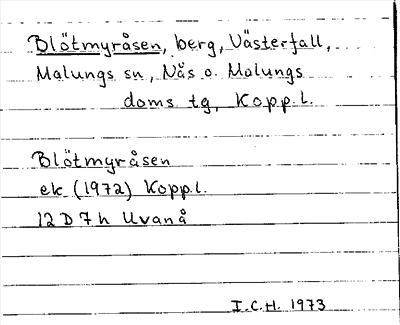 Blötmyråsen, berg, Västerfall,
Malungs sn, Nås o. Malungs
doms tg, Kopp.l.
Blötmyråsen
ek (1972) Kopp.l.
12 D 7 h Uvanå
I.C.H. 1973